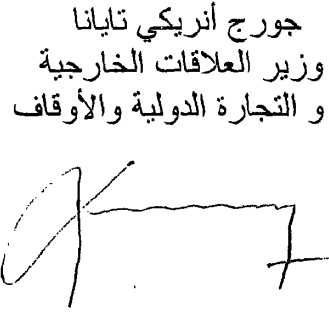 جورج أنريكي تايانا
وزير العلاقات الخارجية
و التجارة الدولية والأوقاف